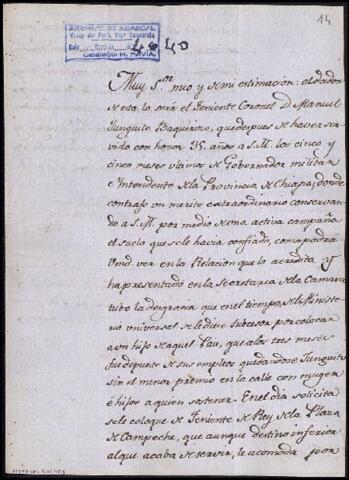 14
ARCHIVO DE ABASCAL
Virrey del Perú, Mqs. Concordia
4840
Muy S.or mio y de mi estimacion: el dador
de esta lo será el Teniente Coronel D. Manuel
Junguito Baquerizo, que despues de haver ser-
vido con honor 35. años a S.M. los cinco y
cinco meses ultimos de Gobernador militar
e Intendente de la Provincia de Chiapa, donde
contrajo un merito extraordinario conservan-
do a S.M. por medio de una activa campaña
el suelo que se le havia confiado, como podrá
Vmd. ver en la Relacion que lo acredita y
ha presentado en la Secretaria de la Camara
tubo la desgracia que en el tiempo del Ministe-
rio universal se le diese subcesor por colocar
a un hijo de aquel Pais, que a los tres meses
fue depuesto de sus empleos quedandose Junguito
sin el menor premio en la calle con muger
e hijos a quien sostener. En el dia solicita
se le coloque de Teniente de Rey de la Plaza
de Campeche, que aunque destino inferior
al que acaba de servir, le acomoda por